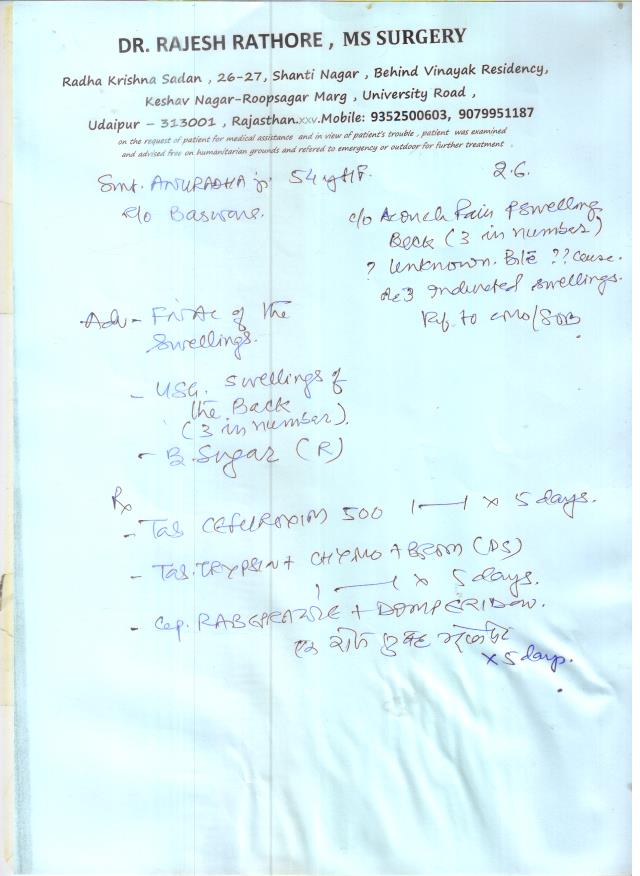 DR. RAJESH RATHORE , MS SURGERY
Radha Krishna Sadan , 26-27, Shanti Nagar , Behind Vinayak Residency,
Keshav Nagar-Roopsagar Marg , University Road ,
Udaipur – 313001 , Rajasthan.xxv.Mobile: 9352500603, 9079951187
on the request of patient for medical assistance and in view of patient's trouble , patient was examined
and advised free on humanitarian grounds and refered to emergency or outdoor for further treatment .
Smt. ANURADHA ji 54 y
2.6.
R/o
c/o Pain swelling
Back (3 in number)
? Unknown. Bite ?? cause.
3 Indurated swellings.
Ref. to CMO/SOB
Adv - FNAC of the
swellings.
- USG. swellings of
the Back
(3 in number).
- B. Sugar (R)
Rx
- Tab CEFUROXIM 500 1—1 x 5 days.
- Tab. TRYPSIN + CHYMO + BROM (DS)
1—1 x 5 days.
- Cap. RABEPRAZOLE + DOMPERIDON.
x 5 days.